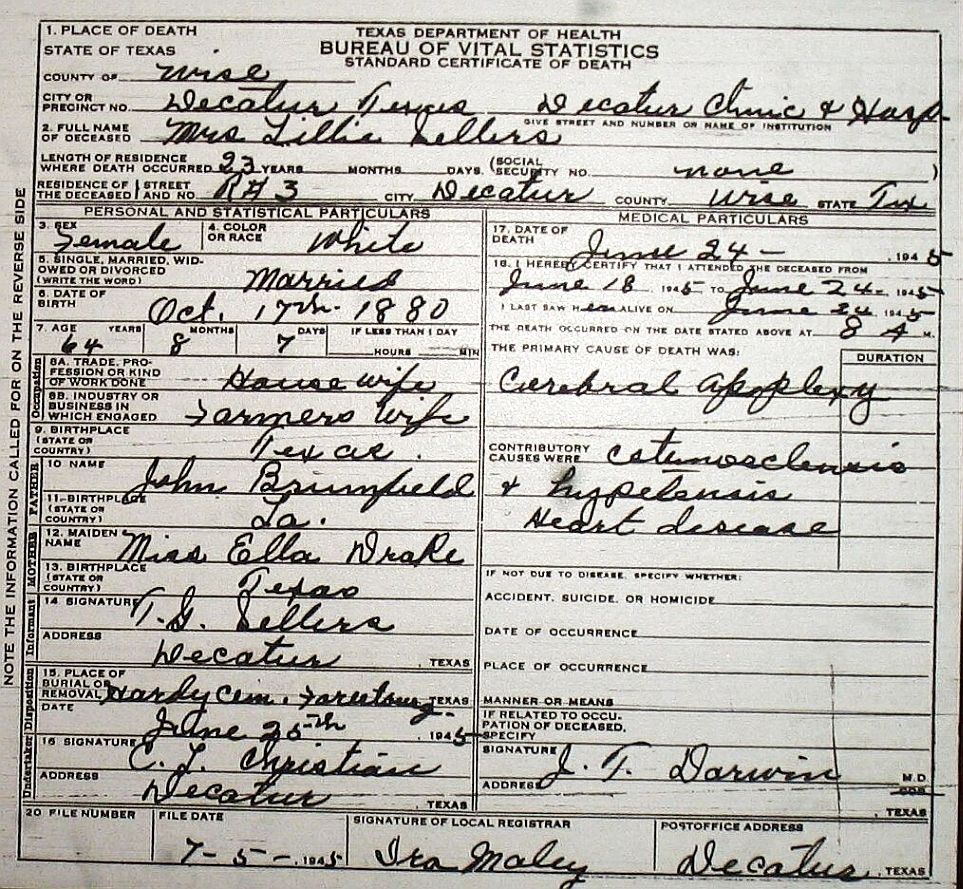 NOTE THE INFORMATION CALLED FOR ON THE REVERSE SIDE
TEXAS DEPARTMENT OF HEALTH
BUREAU OF VITAL STATISTICS
STANDARD CERTIFICATE OF DEATH
1. PLACE OF DEATH
STATE OF TEXAS
COUNTY OF Wise
CITY OR PRECINCT NO. Decatur Texas Decatur Clinic & Hosp.
GIVE STREET AND NUMBER OR NAME OF INSTITUTION
2. FULL NAME OF DECEASED Mrs Lillie Sellers
LENGTH OF RESIDENCE WHERE DEATH OCCURRED 23 YEARS MONTHS DAYS. (SOCIAL SECURITY NO. none )
RESIDENCE OF THE DECEASED STREET AND NO. R#3 CITY Decatur COUNTY Wise STATE Tex
PERSONAL AND STATISTICAL PARTICULARS
3. SEX Female 4. COLOR OR RACE White
5. SINGLE, MARRIED, WIDOWED OR DIVORCED (WRITE THE WORD) Married
6. DATE OF BIRTH Oct. 17th. 1880
7. AGE YEARS MONTHS DAYS IF LESS THAN 1 DAY
64 8 7 HOURS MIN
Occupation
8A. TRADE, PROFESSION OR KIND OF WORK DONE House wife
8B. INDUSTRY OR BUSINESS IN WHICH ENGAGED Farmers wife
9. BIRTHPLACE (STATE OR COUNTRY) Texas.
FATHER
10 NAME John Brumfield
11. BIRTHPLACE (STATE OR COUNTRY) La.
MOTHER
12. MAIDEN NAME Miss Ella Drake
13. BIRTHPLACE (STATE OR COUNTRY) Texas
Informant
14 SIGNATURE T.G. Sellers
ADDRESS Decatur, TEXAS
Disposition
15. PLACE OF BURIAL OR REMOVAL Hardy Cem. TEXAS
DATE June 25th, 1945
Undertaker
16 SIGNATURE C. L. Christian
ADDRESS Decatur, TEXAS
MEDICAL PARTICULARS
17. DATE OF DEATH June 24-, 1945
18. I HEREBY CERTIFY THAT I ATTENDED THE DECEASED FROM
June 18 1945 TO June 24-, 1945
I LAST SAW Her ALIVE ON June 24 1945
THE DEATH OCCURRED ON THE DATE STATED ABOVE AT 8 A M.
THE PRIMARY CAUSE OF DEATH WAS: DURATION
Cerebral apoplexy
CONTRIBUTORY CAUSES WERE
& hypetensis
Heart disease
IF NOT DUE TO DISEASE, SPECIFY WHETHER:
ACCIDENT, SUICIDE, OR HOMICIDE
DATE OF OCCURRENCE
PLACE OF OCCURRENCE
MANNER OR MEANS
IF RELATED TO OCCUPATION OF DECEASED, SPECIFY
SIGNATURE J. T. Darwin M.D.
ADDRESS , TEXAS
20 FILE NUMBER FILE DATE SIGNATURE OF LOCAL REGISTRAR POSTOFFICE ADDRESS
7-5-, 1945 Ira Maley Decatur, TEXAS